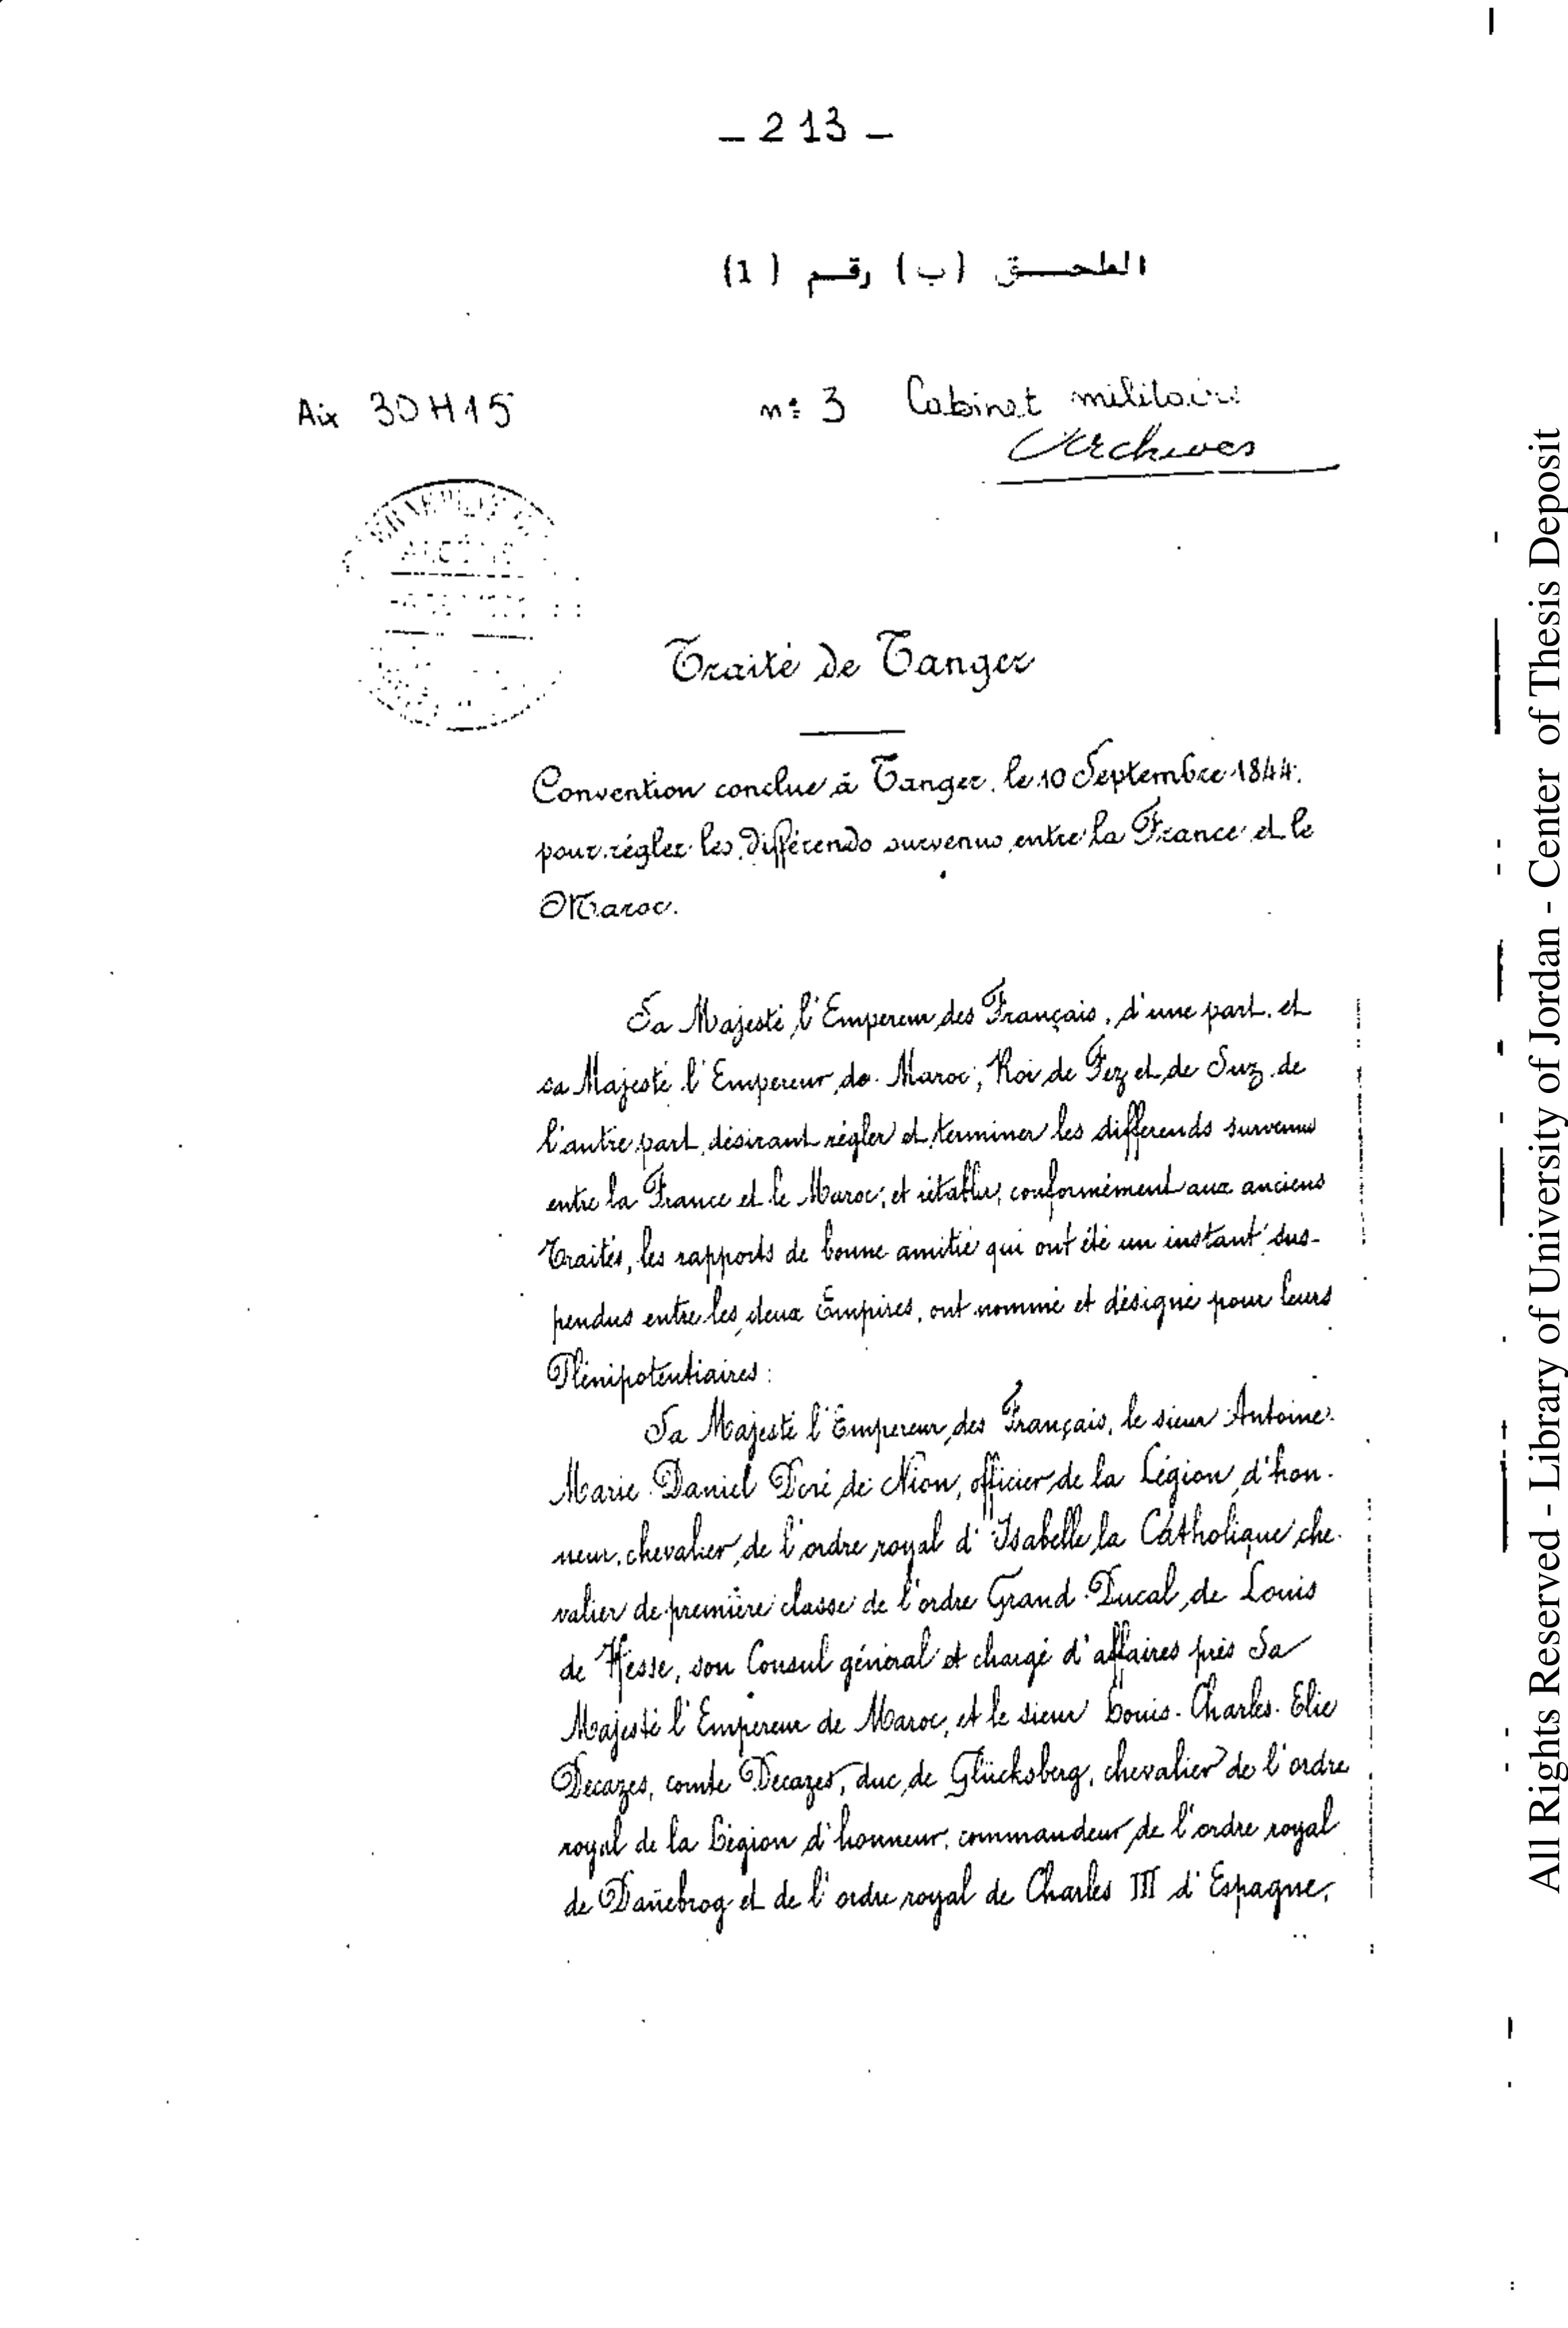 _ 213 _
الملحـــق (ب) رقـــم (1)
Aix 30H15
n° 3 Cabinet militaire
Archives
Traité de Tanger
Convention conclue à Tanger, le 10 Septembre 1844,
pour régler les différends survenus entre la France et le
Maroc.
Sa Majesté l'Empereur des Français, d'une part, et
sa Majesté l'Empereur de Maroc, Roi de Fez et de Suz, de
l'autre part, désirant régler et terminer les différends survenus
entre la France et le Maroc, et rétablir, conformément aux anciens
Traités, les rapports de bonne amitié qui ont été un instant sus-
pendus entre les deux Empires, ont nommé et désigné pour leurs
Plénipotentiaires :
Sa Majesté l'Empereur des Français, le sieur Antoine-
Marie-Daniel Doré de Nion, officier de la Légion d'hon-
neur, chevalier de l'ordre royal d'Isabelle la Catholique, che-
valier de première classe de l'ordre Grand-Ducal de Louis
de Hesse, son Consul général et chargé d'affaires près Sa
Majesté l'Empereur de Maroc, et le sieur Louis-Charles-Elie
Decazes, comte Decazes, duc de Glücksberg, chevalier de l'ordre
royal de la Légion d'honneur, commandeur de l'ordre royal
de Danebrog et de l'ordre royal de Charles III d'Espagne,
All Rights Reserved - Library of University of Jordan - Center of Thesis Deposit